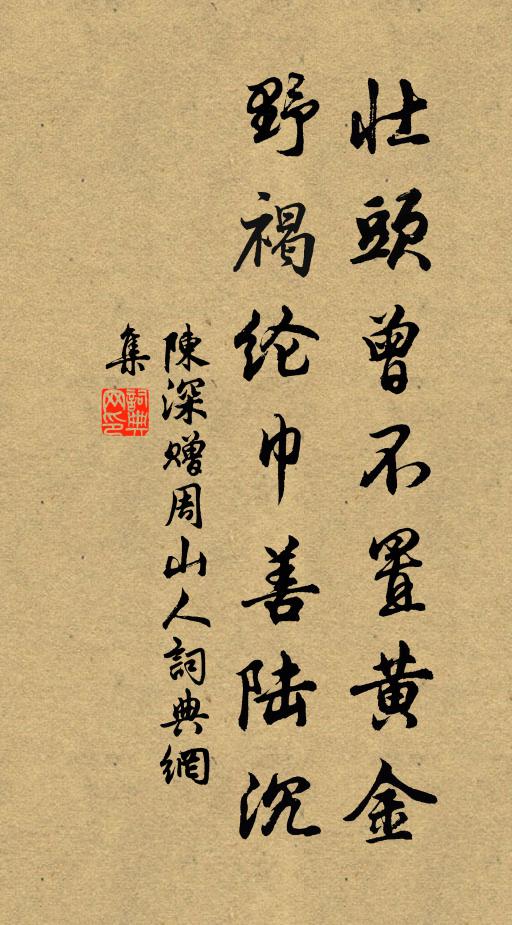 壮頭曾不置黄金
野褐纶巾善陆沉
陳深赠周山人詞典網
集
詞典
网印